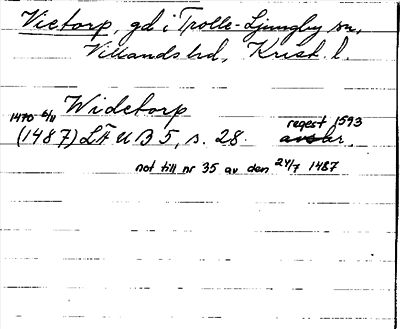 Victorp, gd i Trolle-Ljungby sn,
Villands hd, Krist. l.
Widetorp
1470 6/11 regest 1593
(1487) LÄUB 5, s. 28. avskr.
not till nr 35 av den 24/7 1487